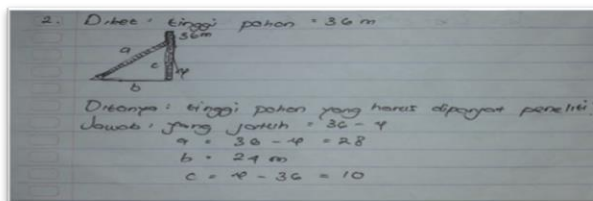 2. Diket : tinggi pohon = 36 m
36m
a
c
4
b
Ditanya : tinggi pohon yang harus dipanjat peneliti
Jawab : yang jatuh = 36 - 4
a = 36 - 4 = 28
b = 24 m
c = 4 - 36 = 10